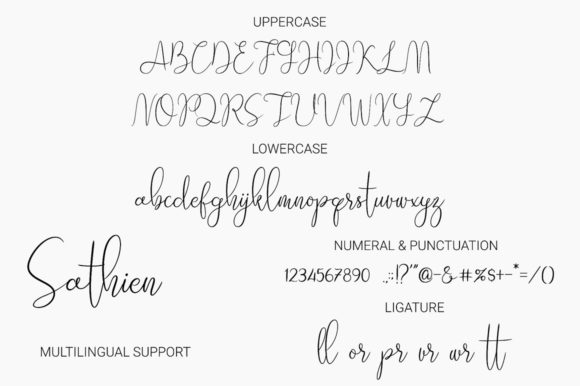 UPPERCASE
ABCDEFGHIJKLM
NOPQRSTUVWXYZ
LOWERCASE
abcdefghijklmnopqrstuvwxyz
Sathien
MULTILINGUAL SUPPORT
NUMERAL & PUNCTUATION
1234567890 .,;:!?'"@-&#%$+-*=/()
LIGATURE
ll or pr vr wr tt